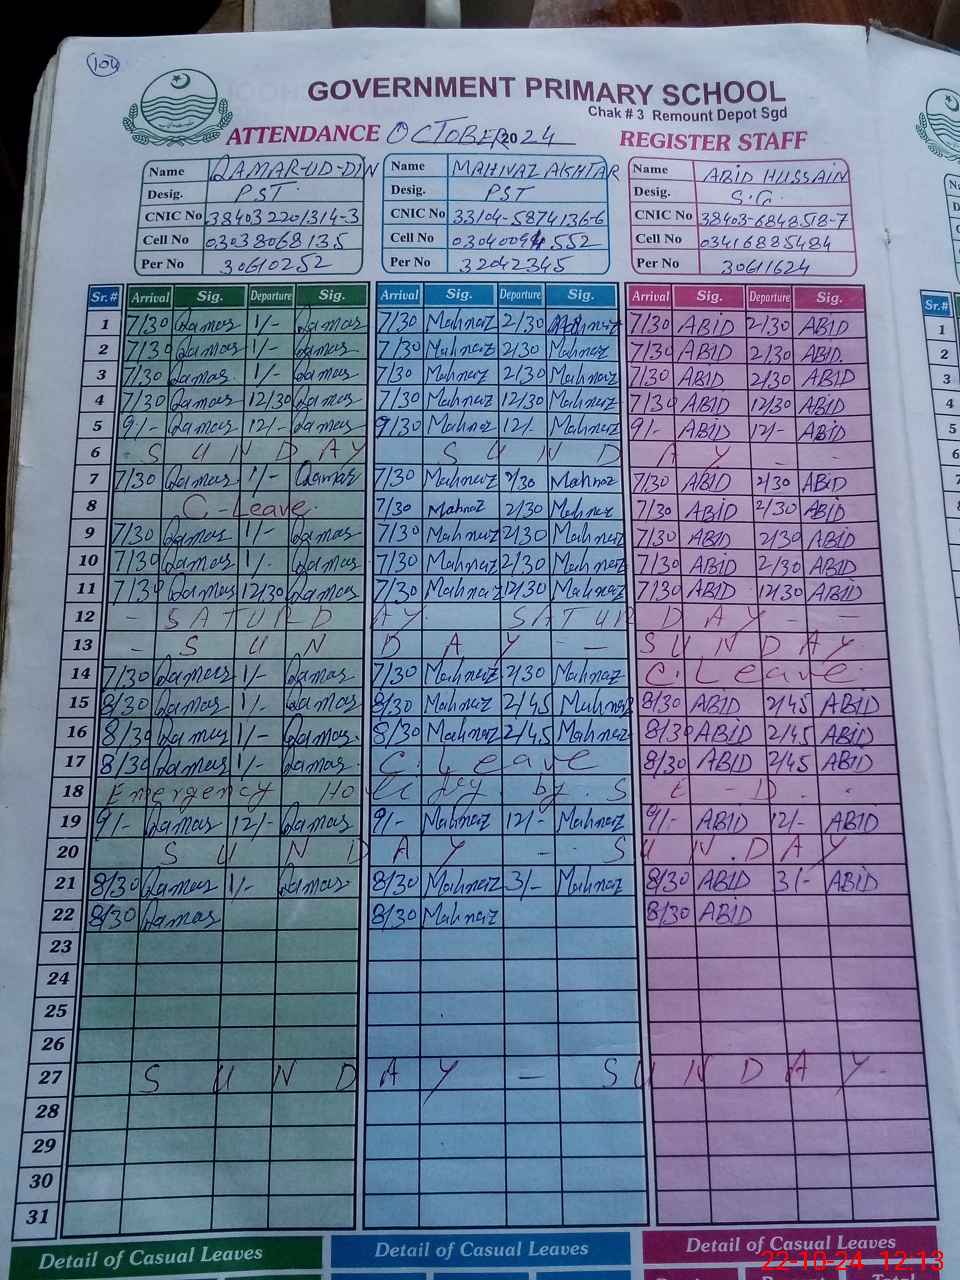 104
GOVERNMENT PRIMARY SCHOOL
Chak # 3 Remount Depot Sgd
ATTENDANCE OCTOBER 2024 REGISTER STAFF
Name QAMAR-UD-DIN Name MAHNAZ AKHTAR Name ABID HUSSAIN
Desig. PST Desig. PST Desig.
CNIC No 38403 2201314-3 CNIC No 33104-5874136-6 CNIC No 38403-6848518-7
Cell No 03038068135 Cell No 03040094552 Cell No 03416885484
Per No 30610252 Per No 32042345 Per No 30611624
Sr.# Arrival Sig. Departure Sig. Arrival Sig. Departure Sig. Arrival Sig. Departure Sig. Sr.#
1 7/30 Qamar 1/- Qamar 7/30 Mahnaz 2/30 Mahnaz 7/30 ABID 2/30 ABID 1
2 7/30 Qamar 1/- Qamar 7/30 Mahnaz 2/30 Mahnaz 7/30 ABID 2/30 ABID. 2
3 7/30 Qamar 1/- Qamar 7/30 Mahnaz 2/30 Mahnaz 7/30 ABID 2/30 ABID 3
4 7/30 Qamar 12/30 Qamar 7/30 Mahnaz 12/30 Mahnaz 7/30 ABID 12/30 ABID 4
5 9/- Qamar 12/- Qamar 9/30 Mahnaz 12/- Mahnaz 9/- ABID 12/- ABID 5
6 - S U N D A Y S U N D A Y - - 6
7 7/30 Qamar 1/- Qamar 7/30 Mahnaz 2/30 Mahnaz 7/30 ABID 2/30 ABID 7
8 C - Leave. 7/30 Mahnaz 2/30 Mahnaz 7/30 ABID 2/30 ABID 8
9 7/30 Qamar 1/- Qamar 7/30 Mahnaz 2/30 Mahnaz 7/30 ABID 2/30 ABID 9
10 7/30 Qamar 1/- Qamar 7/30 Mahnaz 2/30 Mahnaz 7/30 ABID 2/30 ABID 10
11 7/30 Qamar 12/30 Qamar 7/30 Mahnaz 12/30 Mahnaz 7/30 ABID 12/30 ABID 11
12 - S A T U R D A Y S A T U R D A Y - -
13 - S U N D A Y - - S U N D A Y
14 7/30 Qamar 1/- Qamar 7/30 Mahnaz 2/30 Mahnaz C. Leave.
15 8/30 Qamar 1/- Qamar 8/30 Mahnaz 2/45 Mahnaz 8/30 ABID 2/45 ABID
16 8/30 Qamar 1/- Qamar. 8/30 Mahnaz 2/45 Mahnaz 8/30 ABID 2/45 ABID
17 8/30 Qamar 1/- Qamar. C. Leave 8/30 ABID 2/45 ABID
18 Emergency Holiday. by. S E - D. .
19 9/- Qamar 12/- Qamar 9/- Mahnaz 12/- Mahnaz 9/- ABID 12/- ABID
20 S U N D A Y - - S U N. D A Y
21 8/30 Qamar 1/- Qamar 8/30 Mahnaz 3/- Mahnaz 8/30 ABID 3/- ABID
22 8/30 Qamar 8/30 Mahnaz 8/30 ABID
23
24
25
26
27 S U N D A Y - S U N D A Y -
28
29
30
31
Detail of Casual Leaves Detail of Casual Leaves Detail of Casual Leaves
22-10-24 12:13